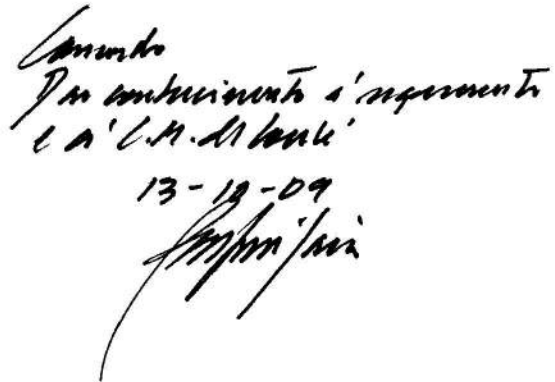 Concordo
Dar conhecimento à requerente
e à C.M. de Loulé
13-10-09